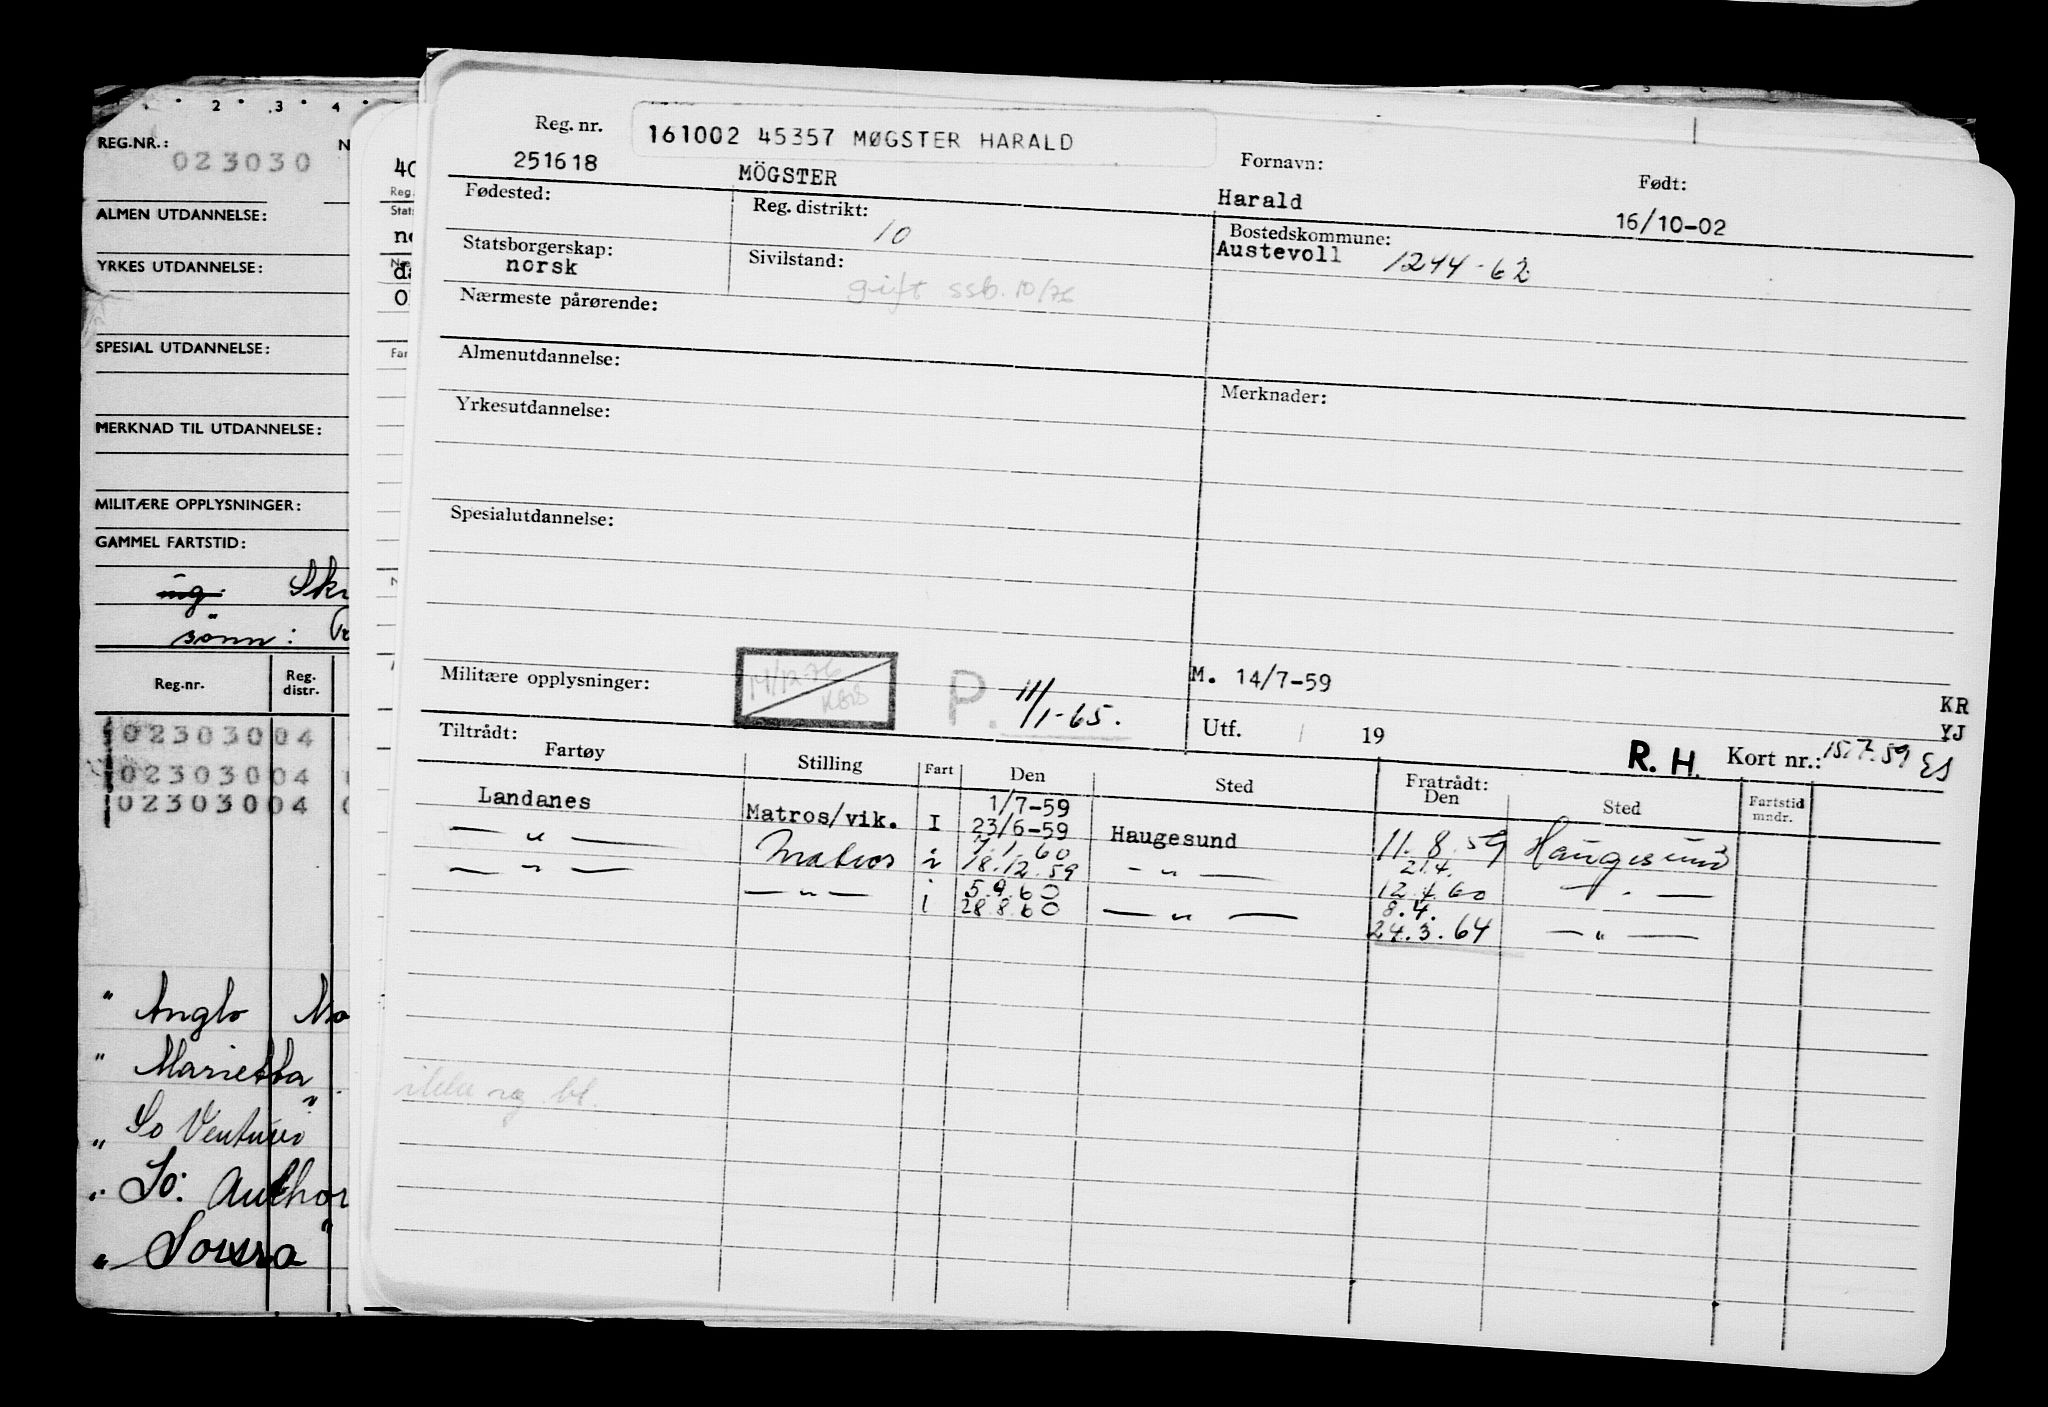 2 3 4
REG.NR.: N
023030
ALMEN UTDANNELSE:
YRKES UTDANNELSE:
SPESIAL UTDANNELSE:
MERKNAD TIL UTDANNELSE:
MILITÆRE OPPLYSNINGER:
GAMMEL FARTSTID:
ing. Sk
sønn:
Reg.nr. Reg. distr.
02303004
02303004
02303004
" Anglo
" Marietta
" So Venture
" So: Author
" Soura
40
Reg.
Stats
no
Næ
da
Far
N
Reg. nr. 161002 45357 MØGSTER HARALD Fornavn: Født:
251618 MÖGSTER Harald 16/10-02
Fødested: Reg. distrikt: 10 Bostedskommune:
Austevoll 1244-62
Statsborgerskap: Sivilstand:
norsk gift ssb. 10/76
Nærmeste pårørende:
Almenutdannelse: Merknader:
Yrkesutdannelse:
Spesialutdannelse:
Militære opplysninger: 14/12-76 P. 11/1-65. M. 14/7-59 KR
YJ
Utf. / 19 R. H. Kort nr.: 15.7.59 ES
Tiltrådt: Fratrådt:
Fartøy Stilling Fart Den Sted Den Sted Fartstid mndr.
Landanes Matros/vik. I 1/7-59 23/6-59 Haugesund 11.8.59 Haugesund
— " — Matros i 7.1.60 18.12.59 — " — 21.4. 12.4.60 — " —
— " — — " — i 5.9.60 28.8.60 — " — 8.4. 24.3.64 — " —